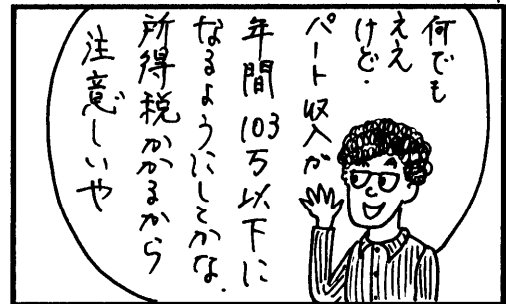 何でも
ええ
けど・
パート収入が
年間103万以下に
なるようにしてかな、
所得税かかるから
注意しいや